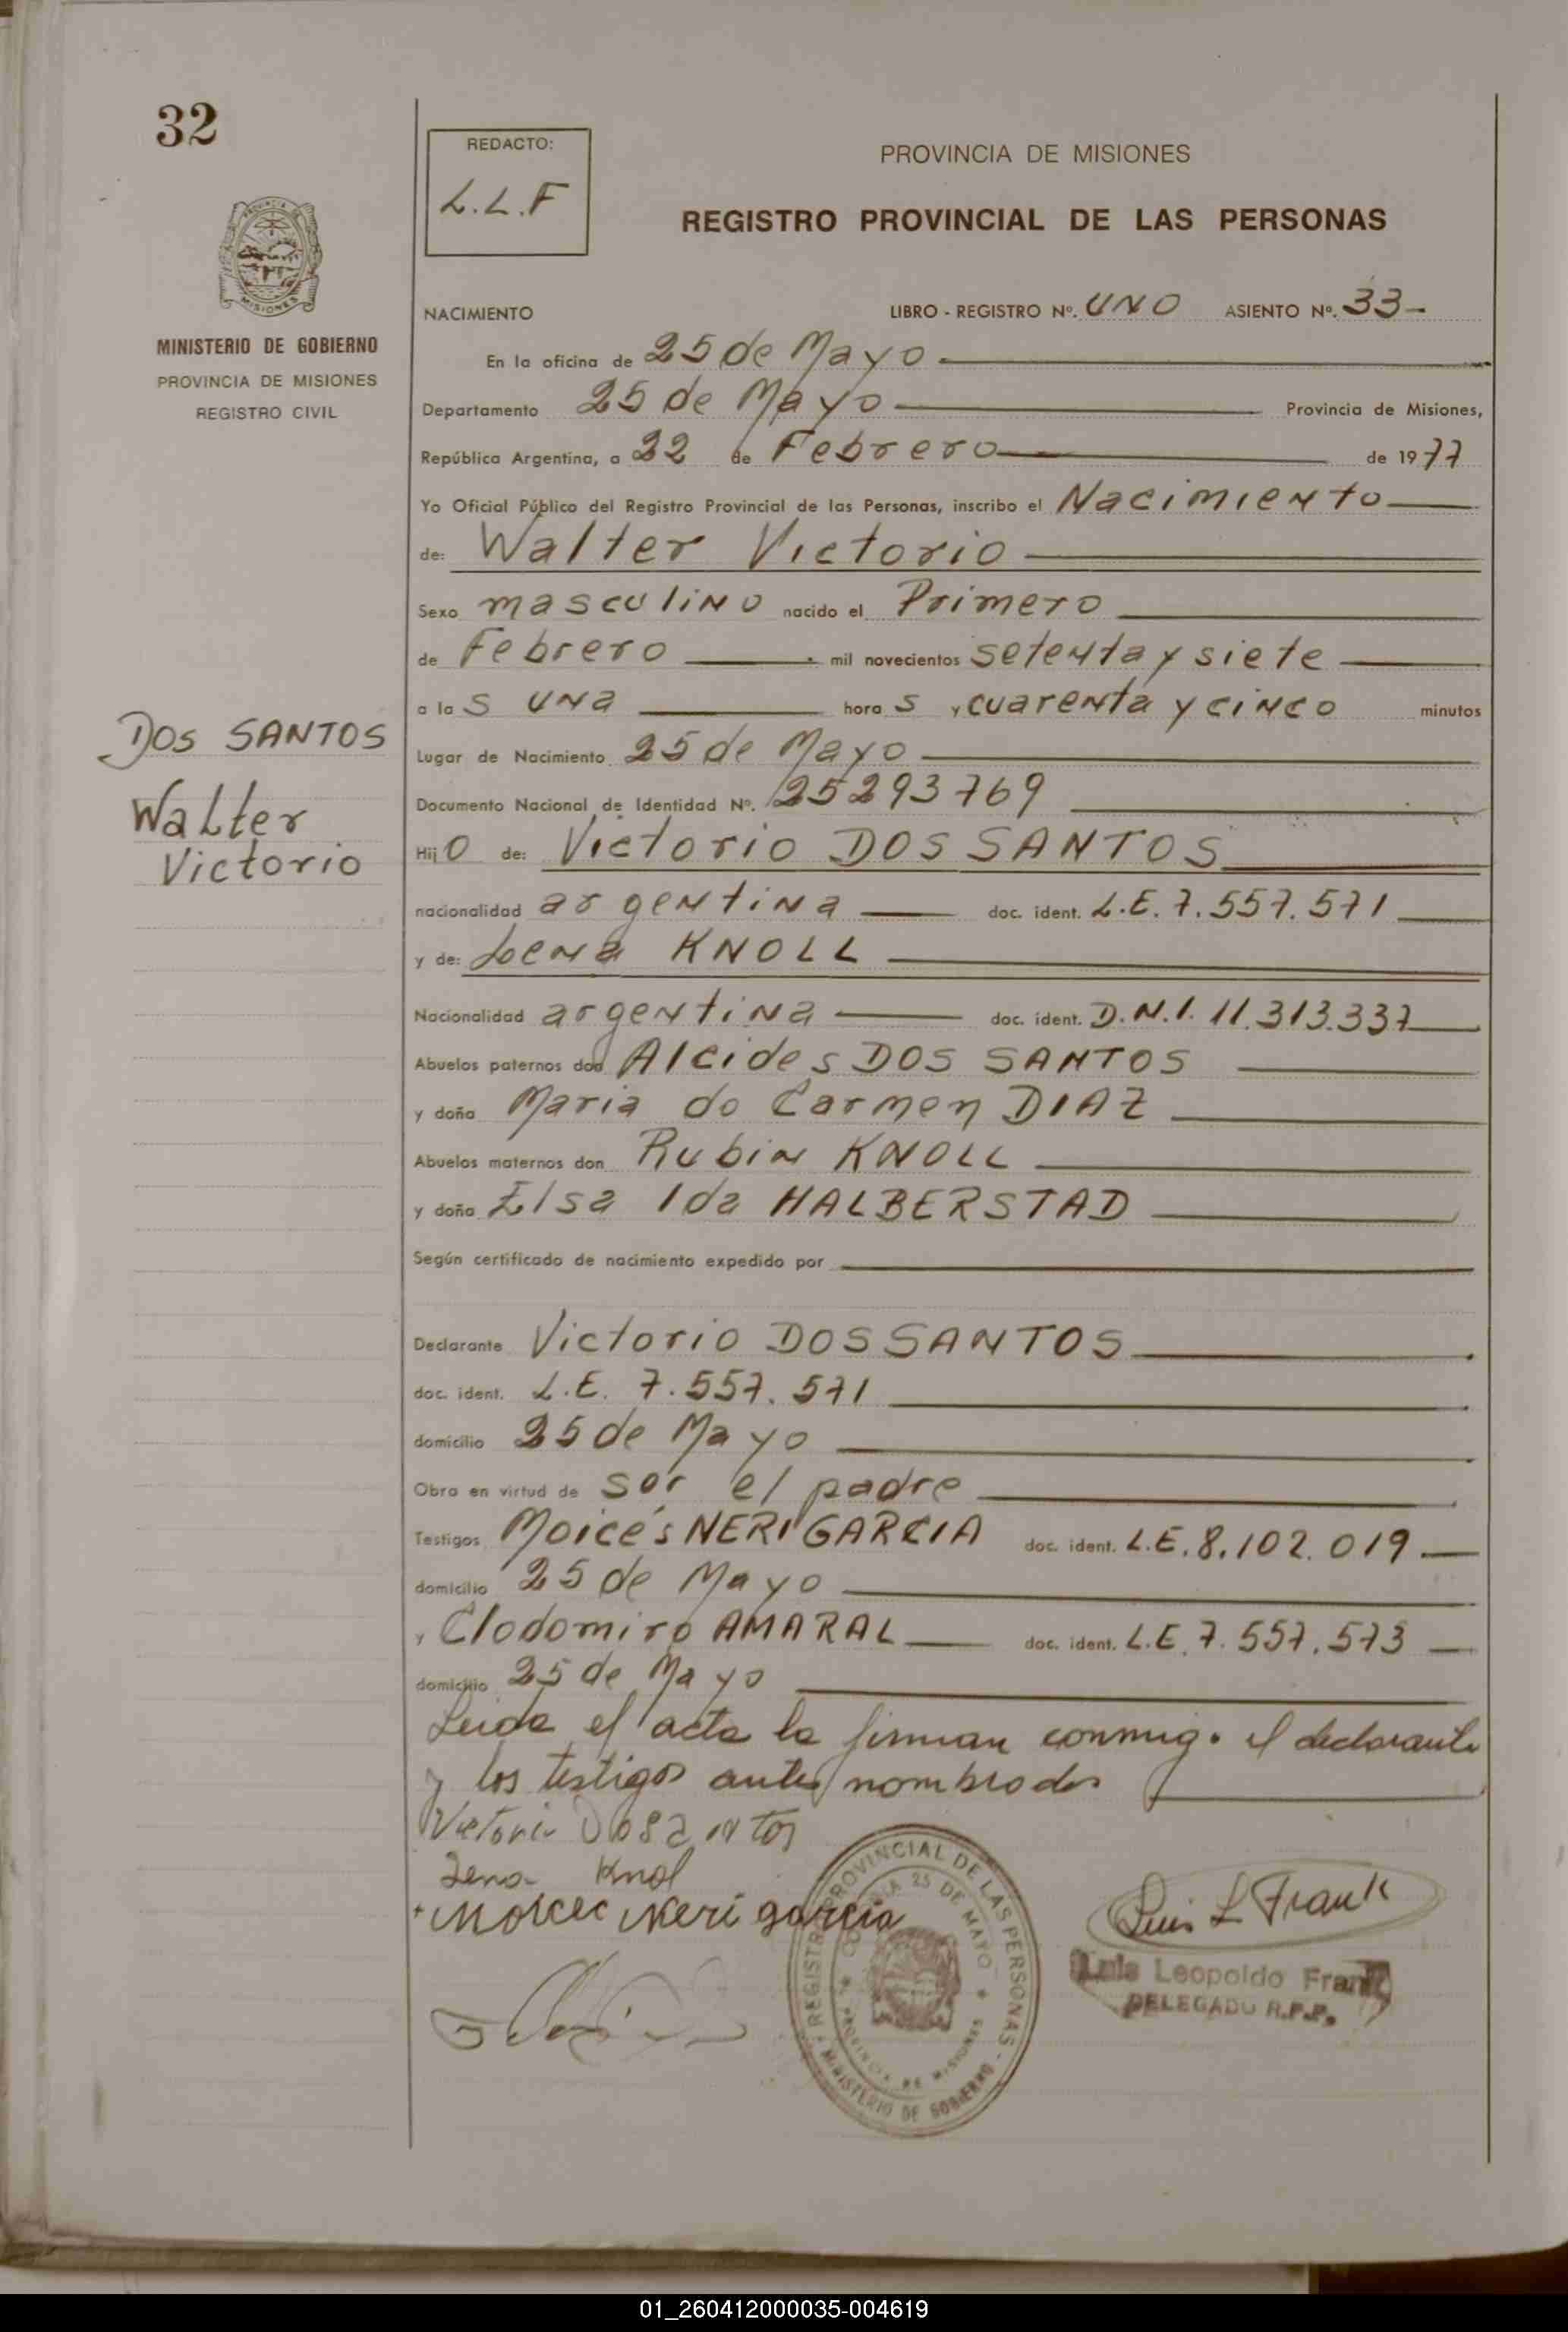 32
REDACTO:
L.L.F
PROVINCIA DE MISIONES
REGISTRO PROVINCIAL DE LAS PERSONAS
MISIONES
MINISTERIO DE GOBIERNO
PROVINCIA DE MISIONES
REGISTRO CIVIL
NACIMIENTO LIBRO - REGISTRO Nº. UNO ASIENTO Nº. 33-
En la oficina de 25 de Mayo
Departamento 25 de Mayo Provincia de Misiones,
República Argentina, a 22 de Febrero de 1977
Yo Oficial Público del Registro Provincial de las Personas, inscribo el Nacimiento
de: Walter Victorio
Sexo masculino nacido el Primero
de Febrero mil novecientos setenta y siete
a las una horas y cuarenta y cinco minutos
DOS SANTOS
Walter
Victorio
Lugar de Nacimiento 25 de Mayo
Documento Nacional de Identidad Nº. 25293769
Hijo de: Victorio DOS SANTOS
nacionalidad argentina doc. ident. L.E. 7.557.571
y de: Lena KNOLL
Nacionalidad argentina doc. ident. D.N.I. 11.313.337
Abuelos paternos don Alcides DOS SANTOS
y doña Maria do Carmen DIAZ
Abuelos maternos don Rubin KNOLL
y doña Elsa Ida HALBERSTAD
Según certificado de nacimiento expedido por
Declarante Victorio DOS SANTOS
doc. ident. L.E. 7.557.571
domicilio 25 de Mayo
Obra en virtud de ser el padre
Testigos Moicés NERI GARCIA doc. ident. L.E. 8.102.019
domicilio 25 de Mayo
y Clodomiro AMARAL doc. ident. L.E. 7.557.573
domicilio 25 de Mayo
Leida el acta la firman conmigo el declarante
y los testigos antes nombrados
Victorio Dosantos
Lena Knol
Moices Neri garcia
REGISTRO PROVINCIAL DE LAS PERSONAS - MINISTERIO DE GOBIERNO
COLONIA 25 DE MAYO * PROVINCIA DE MISIONES *
Luis L Frank
Luis Leopoldo Frank
DELEGADO R.P.P.
01_260412000035-004619